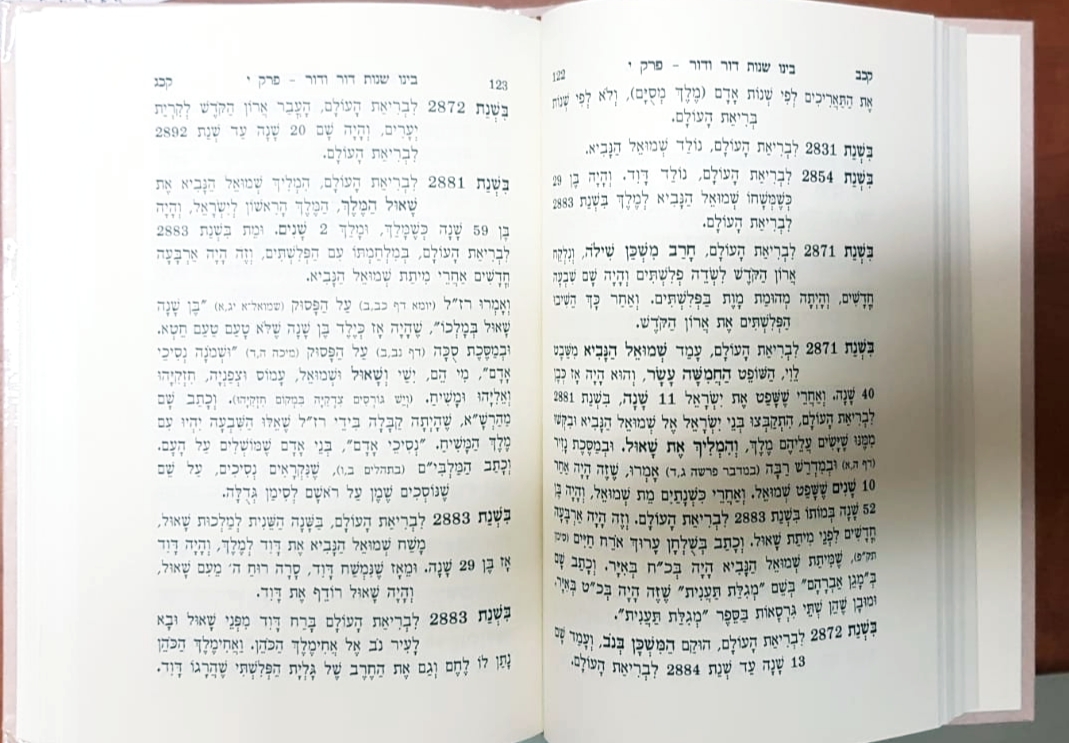 קכב
בינו שנות דור ודור - פרק י
122
אֶת הַתַּאֲרִיכִים לְפִי שְׁנוֹת אָדָם (מֶלֶךְ מְסֻיָּם), וְלֹא לְפִי שְׁנוֹת
בְּרִיאַת הָעוֹלָם.
בִּשְׁנַת 2831 לִבְרִיאַת הָעוֹלָם, נוֹלַד שְׁמוּאֵל הַנָּבִיא.
בִּשְׁנַת 2854 לִבְרִיאַת הָעוֹלָם, נוֹלַד דָּוִד. וְהָיָה בֶּן 29
כְּשֶׁמְּשָׁחוֹ שְׁמוּאֵל הַנָּבִיא לְמֶלֶךְ בִּשְׁנַת 2883
לִבְרִיאַת הָעוֹלָם.
בִּשְׁנַת 2871 לִבְרִיאַת הָעוֹלָם, חָרַב מִשְׁכַּן שִׁילֹה, וְנִלְקַח
אֲרוֹן הַקֹּדֶשׁ לִשְׂדֵה פְלִשְׁתִּים וְהָיָה שָׁם שִׁבְעָה
חֳדָשִׁים, וְהָיְתָה מְהוּמַת מָוֶת בַּפְּלִשְׁתִּים. וְאַחַר כָּךְ הֵשִׁיבוּ
הַפְּלִשְׁתִּים אֶת אֲרוֹן הַקֹּדֶשׁ.
בִּשְׁנַת 2871 לִבְרִיאַת הָעוֹלָם, עָמַד שְׁמוּאֵל הַנָּבִיא מִשֵּׁבֶט
לֵוִי, הַשּׁוֹפֵט הַחֲמִשָּׁה עָשָׂר, וְהוּא הָיָה אָז כְּבֶן
40 שָׁנָה. וְאַחֲרֵי שֶׁשָּׁפַט אֶת יִשְׂרָאֵל 11 שָׁנָה, בִּשְׁנַת 2881
לִבְרִיאַת הָעוֹלָם, הִתְקַבְּצוּ בְּנֵי יִשְׂרָאֵל אֶל שְׁמוּאֵל הַנָּבִיא וּבִקְשׁוּ
מִמֶּנּוּ שֶׁיָּשִׂים עֲלֵיהֶם מֶלֶךְ, וְהִמְלִיךְ אֶת שָׁאוּל. וּבְמַסֶּכֶת נָזִיר
(דף ה,א) וּבְמִדְרַשׁ רַבָּה (במדבר פרשה ג,ד) אָמְרוּ, שֶׁזֶּה הָיָה אַחַר
10 שָׁנִים שֶׁשָּׁפַט שְׁמוּאֵל. וְאַחֲרֵי כִּשְׁנָתַיִם מֵת שְׁמוּאֵל, וְהָיָה בֶּן
52 שָׁנָה בְּמוֹתוֹ בִּשְׁנַת 2883 לִבְרִיאַת הָעוֹלָם. וְזֶה הָיָה אַרְבָּעָה
חֳדָשִׁים לִפְנֵי מִיתַת שָׁאוּל. וְכָתַב בְּשֻׁלְחָן עָרוּךְ אֹרַח חַיִּים (סימן
תק"פ), שֶׁמִּיתַת שְׁמוּאֵל הַנָּבִיא הָיָה בְּכ"ח בְּאִיָּר. וְכָתַב שָׁם
בְּ"מָגֵן אַבְרָהָם" בְּשֵׁם "מְגִלַּת תַּעֲנִית" שֶׁזֶּה הָיָה בְּכ"ט בְּאִיָּר.
וּמוּבָן שֶׁהֵן שְׁתֵּי גִּרְסָאוֹת בַּסֵּפֶר "מְגִלַּת תַּעֲנִית".
בִּשְׁנַת 2872 לִבְרִיאַת הָעוֹלָם, הוּקַם הַמִּשְׁכָּן בְּנֹב, וְעָמַד שָׁם
13 שָׁנָה עַד שְׁנַת 2884 לִבְרִיאַת הָעוֹלָם.
123
בינו שנות דור ודור - פרק י
קכג
בִּשְׁנַת 2872 לִבְרִיאַת הָעוֹלָם, הָעֳבַר אֲרוֹן הַקֹּדֶשׁ לְקִרְיַת
יְעָרִים, וְהָיָה שָׁם 20 שָׁנָה עַד שְׁנַת 2892
לִבְרִיאַת הָעוֹלָם.
בִּשְׁנַת 2881 לִבְרִיאַת הָעוֹלָם, הִמְלִיךְ שְׁמוּאֵל הַנָּבִיא אֶת
שָׁאוּל הַמֶּלֶךְ, הַמֶּלֶךְ הָרִאשׁוֹן לְיִשְׂרָאֵל, וְהָיָה
בֶּן 59 שָׁנָה כְּשֶׁמָּלַךְ, וּמָלַךְ 2 שָׁנִים. וּמֵת בִּשְׁנַת 2883
לִבְרִיאַת הָעוֹלָם, בְּמִלְחַמְתּוֹ עִם הַפְּלִשְׁתִּים, וְזֶה הָיָה אַרְבָּעָה
חֳדָשִׁים אַחֲרֵי מִיתַת שְׁמוּאֵל הַנָּבִיא.
וְאָמְרוּ רז"ל (יומא דף כב,ב) עַל הַפָּסוּק (שמואל-א יג,א) "בֶּן שָׁנָה
שָׁאוּל בְּמָלְכוֹ", שֶׁהָיָה אָז כְּיֶלֶד בֶּן שָׁנָה שֶׁלֹּא טָעַם טַעַם חֵטְא.
וּבְמַסֶּכֶת סֻכָּה (דף נב,ב) עַל הַפָּסוּק (מיכה ה,ד) "וּשְׁמֹנָה נְסִיכֵי
אָדָם", מִי הֵם, יִשַׁי וְשָׁאוּל וּשְׁמוּאֵל, עָמוֹס וּצְפַנְיָה, חִזְקִיָּהוּ
וְאֵלִיָּהוּ וּמָשִׁיחַ. (וְיֵשׁ גּוֹרְסִים צִדְקִיָּה בִּמְקוֹם חִזְקִיָּהוּ). וְכָתַב שָׁם
מַהַרְשָׁ"א, שֶׁהָיְתָה קַבָּלָה בִּידֵי רז"ל שֶׁאֵלּוּ הַשִּׁבְעָה יִהְיוּ עִם
מֶלֶךְ הַמָּשִׁיחַ. "נְסִיכֵי אָדָם", בְּנֵי אָדָם שֶׁמּוֹשְׁלִים עַל הָעָם.
וְכָתַב הַמַּלְבִּי"ם (בתהלים ב,ו), שֶׁנִּקְרָאִים נְסִיכִים, עַל שֵׁם
שֶׁנּוֹסְכִים שֶׁמֶן עַל רֹאשָׁם לְסִימַן גְּדֻלָּה.
בִּשְׁנַת 2883 לִבְרִיאַת הָעוֹלָם, בַּשָּׁנָה הַשֵּׁנִית לְמַלְכוּת שָׁאוּל,
מָשַׁח שְׁמוּאֵל הַנָּבִיא אֶת דָּוִד לְמֶלֶךְ, וְהָיָה דָּוִד
אָז בֶּן 29 שָׁנָה. וּמֵאָז שֶׁנִּמְשַׁח דָּוִד, סָרָה רוּחַ ה' מֵעִם שָׁאוּל,
וְהָיָה שָׁאוּל רוֹדֵף אֶת דָּוִד.
בִּשְׁנַת 2883 לִבְרִיאַת הָעוֹלָם בָּרַח דָּוִד מִפְּנֵי שָׁאוּל וּבָא
לָעִיר נֹב אֶל אֲחִימֶלֶךְ הַכֹּהֵן. וַאֲחִימֶלֶךְ הַכֹּהֵן
נָתַן לוֹ לֶחֶם וְגַם אֶת הַחֶרֶב שֶׁל גָּלְיָת הַפְּלִשְׁתִּי שֶׁהֲרָגוֹ דָּוִד.